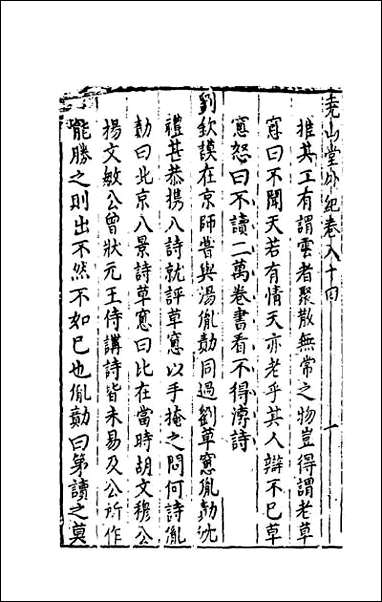 堯山堂外紀卷八十四 一
推其工有謂雲者聚散無常之物豈得謂老草
窓曰不聞天若有情天亦老乎其人辯不已草
窓怒曰不讀二萬卷書看不得溥詩
劉欽謨在京師嘗與湯胤勣同過劉草窓胤勣沈
禮甚恭携八詩就評草窓以手掩之問何詩胤
勣曰此京八景詩草窓曰比在當時胡文穆公
楊文敏公曾狀元王侍講詩皆未易及公所作
能勝之則出不然不如已也胤勣曰第讀之莫